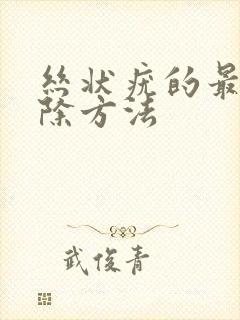 丝状疣的最
除方法
武俊青